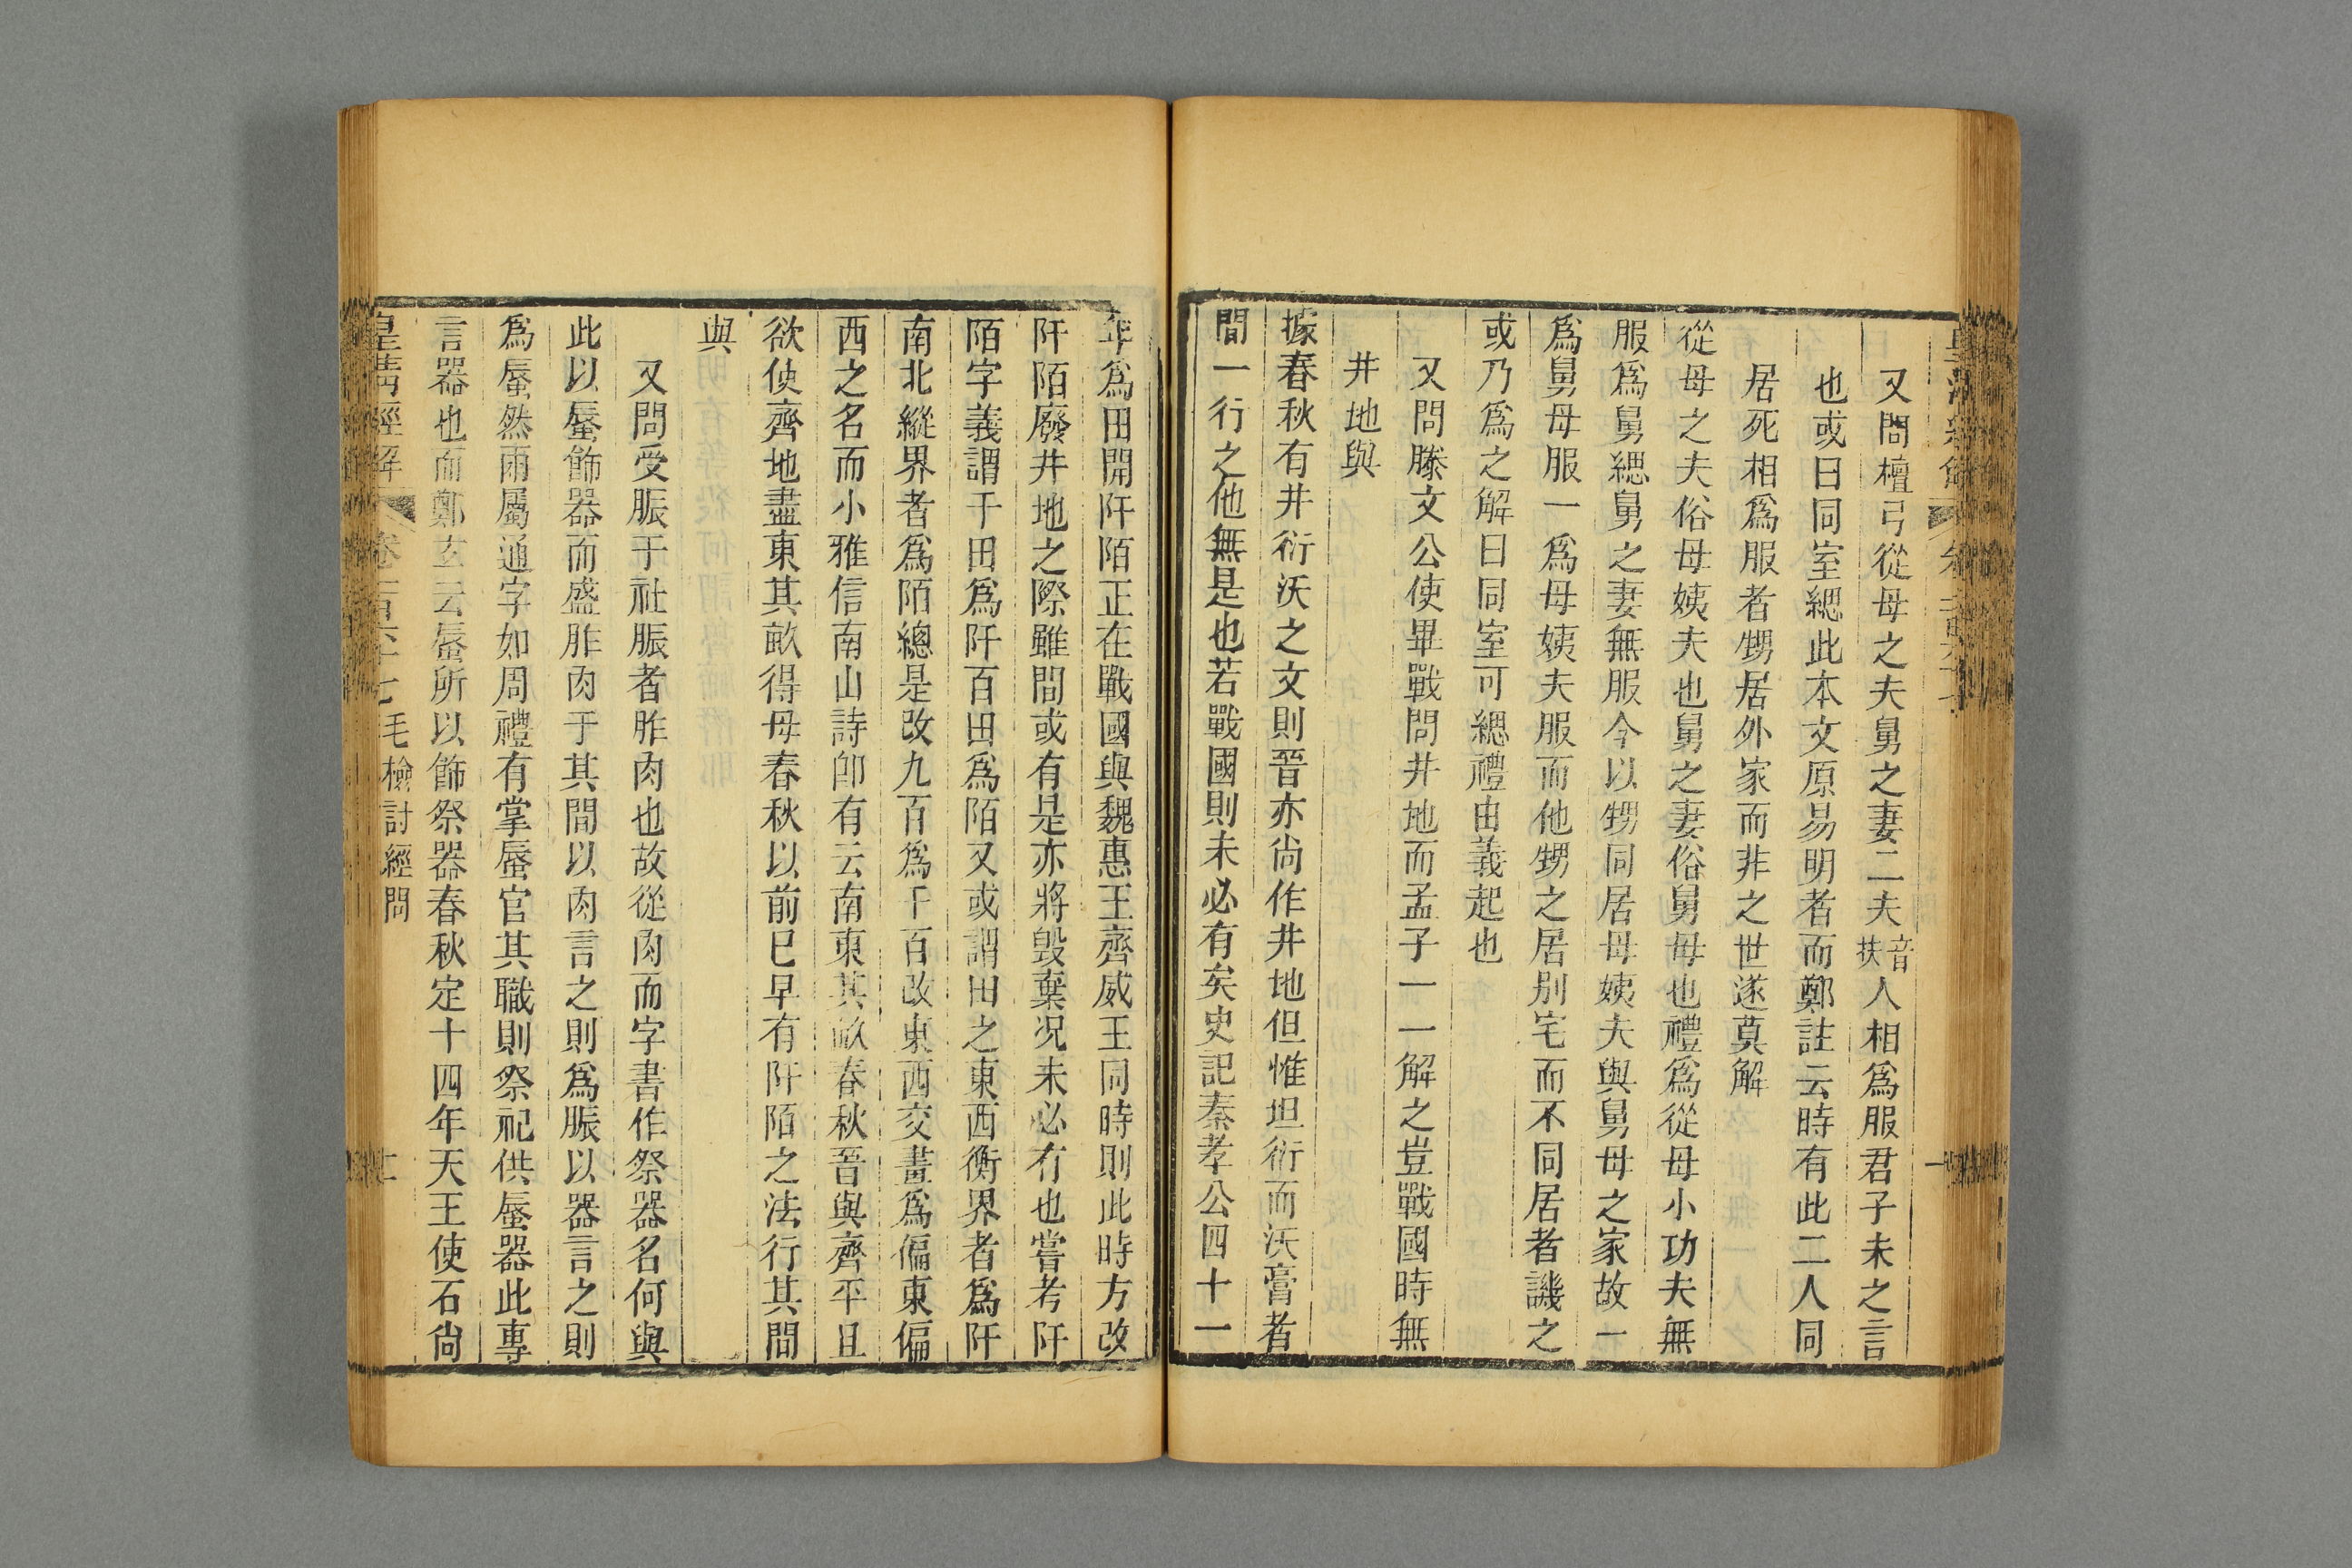 又問檀弓從母之夫舅之妻二夫音扶人相爲服君子未之言
也或曰同室緦此本文原易明者而鄭註云時有此二人同
居死相爲服者甥居外家而非之世遂莫解
從母之夫俗母姨夫也舅之妻俗舅母也禮爲從母小功夫無
服爲舅緦舅之妻無服今以甥同居母姨夫與舅母之家故一
爲舅母服一爲母姨夫服而他甥之居别宅而不同居者譏之
或乃爲之解曰同室可緦禮由義起也
又問滕文公使畢戰問井地而孟子一一解之豈戰國時無
井地與
據春秋有井衍沃之文則晉亦尚作井地但惟坦衍而沃膏者
間一行之他無是也若戰國則未必有矣史記秦孝公四十一
年爲田開阡陌正在戰國與魏惠王齊威王同時則此時方改
阡陌廢井地之際雖間或有是亦將毀棄况未必有也嘗考阡
陌字義謂千田爲阡百田爲陌又或謂田之東西衡界者爲阡
南北縱界者爲陌總是改九百爲千百改東西交畫爲偏東偏
西之名而小雅信南山詩卽有云南東其畝春秋晉與齊平且
欲使齊地盡東其畝得毋春秋以前已早有阡陌之法行其間
與
又問受脤于社脤者胙肉也故從肉而字書作祭器名何與
此以蜃飾器而盛胙肉于其間以肉言之則爲脤以器言之則
爲蜃然兩屬通字如周禮有掌蜃官其職則祭祀供蜃器此專
言器也而鄭玄云蜃所以飾祭器春秋定十四年天王使石尚
皇清經解 卷一百六十七 毛檢討經問